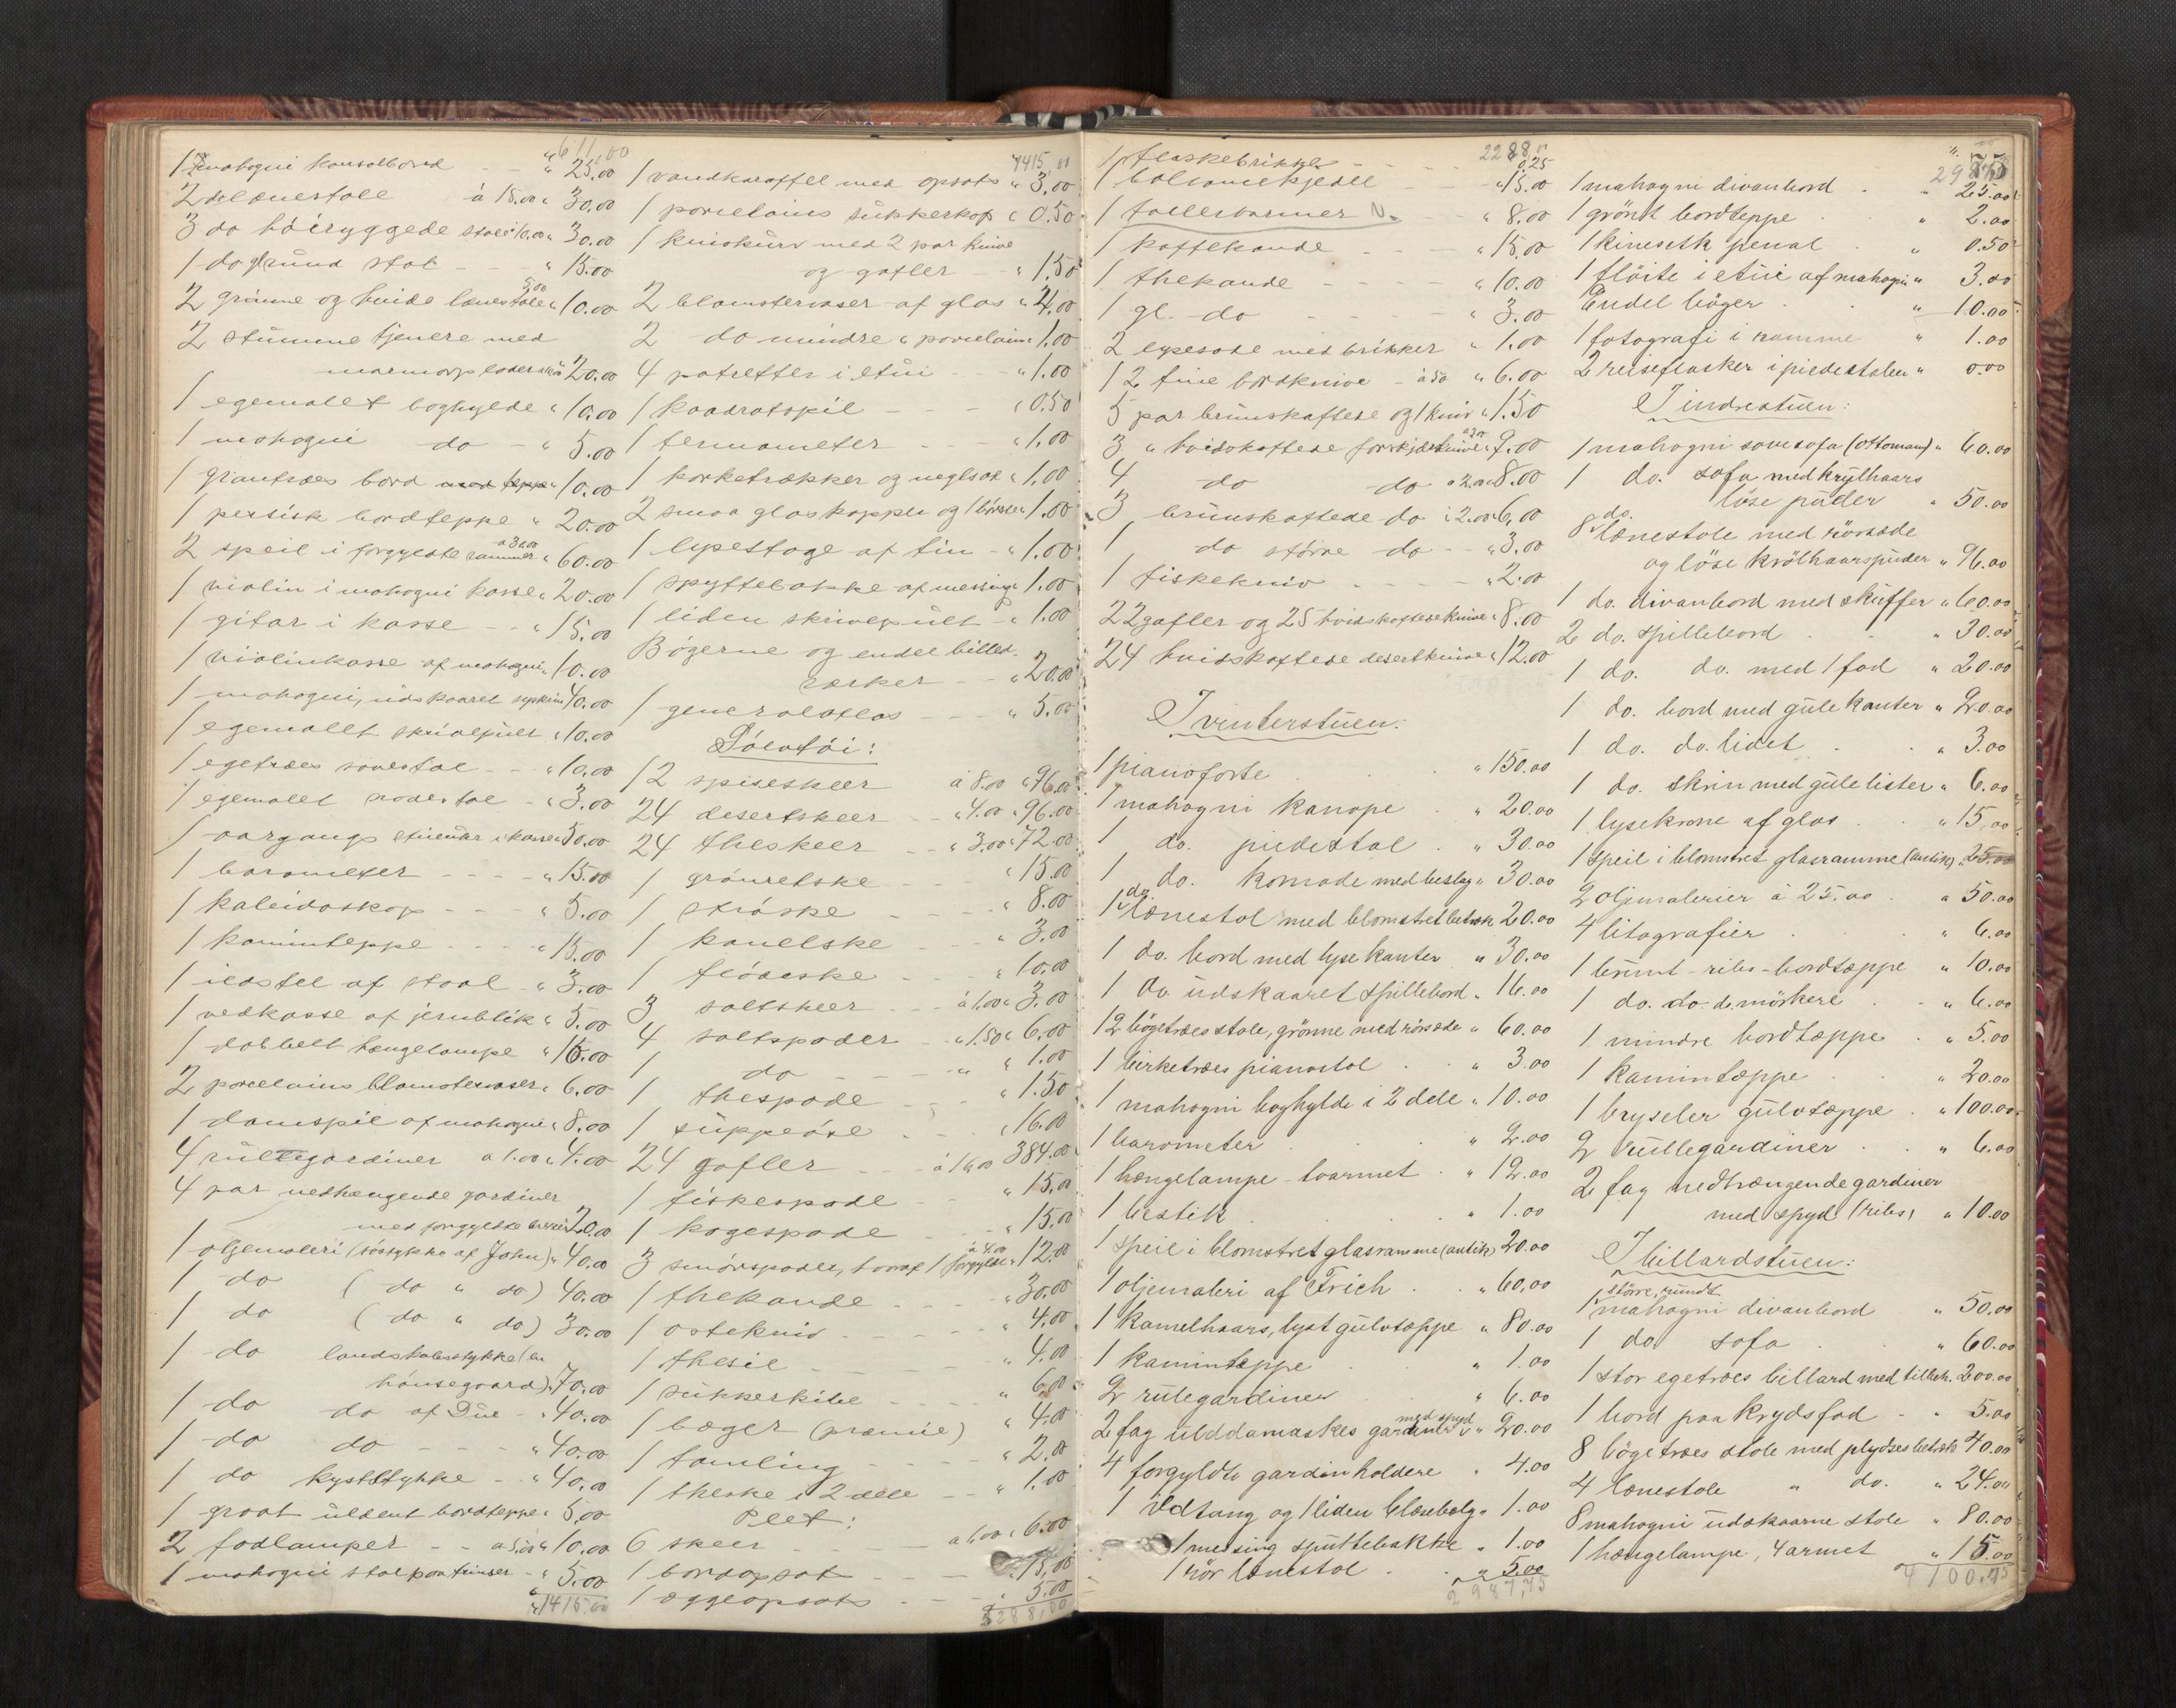 611,00
1 mahogni konsolbord " 25.00
2 do lænestole á 15.00 " 30.00
3 do høiryggede stole 10.00 " 30.00
1 do rund stol - " 15.00
2 grønne og hvide lænestole 5.00 " 10.00
2 stumme tjenere med
marmorplader " 20.00
1 egemalet boghylde " 10.00
1 mahogni do - " 5.00
1 grantræes bord " 10.00
1 persisk bordteppe " 20.00
2 speil i forgyldte rammer a 30.00 " 60.00
1 violin i mahogni kasse " 20.00
1 gitar i kasse - " 15.00
1 violinkasse af mahogni " 10.00
1 mahogni, udskaaret syskrin 40.00
1 egemalet skrivepult " 10.00
1 egetræes sovestol - " 10.00
1 egemalet do - " 3.00
1 aargangs i kasse 50.00
1 barometer - - - " 15.00
1 kaleidoskop - - " 5.00
1 kaminteppe - - - " 15.00
1 ildstel af staal - " 3.00
1 vedkasse af jernblik " 5.00
1 dobbelt hængelampe " 16.00
2 porcelains blomstervaser " 6.00
1 damspil af mahogni " 8.00
4 rullegardiner a 1.00 " 4.00
4 par nedhængende gardiner
med forgyldte 20.00
1 oljemaleri (søstykke af John) " 40.00
1 do ( do " do) 40.00
1 do ( do " do) 30.00
1 do landskabsstykke (en
hønsegaard) " 70.00
1 do do af Due - " 40.00
1 do do - - - " 40.00
1 do kyststykke - " 40.00
1 graat uldent bordteppe " 5.00
2 fodlamper - - a 5.00 " 10.00
1 mahogni stol - " 5.00
1415.00
1415,00
1 vandkaraffel med opsats " 3.00
1 porcelains sukkerkop " 0.50
1 knivkurv med 2 par knive
og gafler - - " 1.50
2 blomstervaser af glas " 4.00
2 do mindre " porcelain " 1.00
4 potretter i etui - - " 1.00
1 kvadratspil - - - " 0.50
1 termometer - - " 1.00
1 korketrækker og neglsax " 1.00
2 smaa glaskopper og 1 børste " 1.00
1 lysestage af tin - " 1.00
1 spyttebakke af messing " 1.00
1 liden skrivepult - " 1.00
Bøgerne og endel billed-
værker - - " 20.00
1 generalatlas - - " 5.00
Sølvtøi:
12 spiseskeer á 8.00 " 96.00
24 desertskeer - " 4.00 " 96.00
24 theskeer - - " 3.00 " 72.00
1 grønretske - - " 15.00
1 strøske - - " 8.00
1 kanelske - - " 3.00
1 flødeske - - " 10.00
3 saltskeer - á 1.00 " 3.00
4 saltspader - " 1.50 " 6.00
1 do - - " 1.00
1 thespade - - " 1.50
1 suppeøse - - " 16.00
24 gafler - - á 16.00 384.00
1 fiskespade - - " 15.00
1 kagespade - - " 15.00
3 smørspader, hvoraf 1 forgyldt á 4.00 " 12.00
1 thekande - - - " 30.00
1 ostekniv - - - " 4.00
1 thesie - - " 4.00
1 sukkerkibe - - " 6.00
1 bæger (præmie) " 4.00
1 tamling - - - " 2.00
1 theske i 2 dele - - " 1.00
Plet:
6 skeer - - - a 1.00 " 6.00
1 bordopsat - - - " 15.00
1 æggeopsats - - - " 5.00
2288,00
2288,00
1 flaskebrikke - - - 0.25
1 - - " 15.00
1 tallervarmer N. " 8.00
1 kaffekande - - " 15.00
1 thekande - - - " 10.00
1 gl. do - - - " 3.00
2 lysesaxe med brikker " 1.00
12 fine bordknive - á 50 " 6.00
5 par brunskaftede og 1 kniv " 1.50
3 " hvidskaftede forskjærknive a 3.00 " 9.00
4 do do a 2.00 " 8.00
3 brunskaftede do a 2.00 " 6.00
1 do større do - - " 3.00
1 fiskekniv - - - " 2.00
22 gafler og 25 hvidskaftede knive " 8.00
24 hvidskaftede desertknive " 12.00
I vinterstuen:
1 pianoforte . . " 150.00
1 mahogni kanope . " 20.00
1 do. piedestal . " 30.00
1 do. komode med beslag " 30.00
1 do. lænestol med blomstret betræk 20.00
1 do. bord med lyse kanter " 30.00
1 do. udskaaret spillebord " 16.00
12 bøgetræes stole, grønne med rørsæde " 60.00
1 birketræes pianostol . " 3.00
1 mahogni boghylde i 2 dele " 10.00
1 barometer . . " 2.00
1 hængelampe - toarmet . " 12.00
1 bestik . . . " 1.00
1 speil i blomstret glasramme (antik) 20.00
1 oljemaleri af Frich . " 60.00
1 kamelhaars, lyst gulvtæppe " 80.00
1 kamintæppe . . " 1.00
2 rulegardiner . " 6.00
2 fag ulddamaskes gardiner med spyd " 20.00
4 forgyldte gardinholdere " 4.00
1 ildtang og 1 liden blæsebelg " 1.00
1 messing spyttebakke " 1.00
1 rør lænestol . . " 5.00
2987,75
2987,75
1 mahogni divanbord . " 25.00
1 grønt bordteppe . . " 2.00
1 kinesisk penal . " 0.50
1 fløite i etui af mahogni " 3.00
Endel bøger . . " 10.00
1 fotografi i ramme " 1.00
2 reiseflasker i piedestalen " 0.00
I indrestuen:
1 mahogni sovesofa (ottoman) " 60.00
1 do. sofa med krylhaars
løse puder " 50.00
8 do. lænestole med rørsæde
og løse krølhaarspuder " 96.00
1 do. divanbord med skuffer " 60.00
2 do. spillebord . . " 30.00
1 do. do. med 1 fod " 20.00
1 do. bord med gule kanter " 20.00
1 do. do. lidet . . " 3.00
1 do. skrin med gule lister " 6.00
1 lysekrone af glas . " 15,00
1 speil i blomstret glasramme (antik) 25.00
2 oljemalerier à 25.00 . " 50.00
4 litografier . . " 6.00
1 brunt - ribs - bordtæppe " 10.00
1 do. do. do. mørkere . " 6.00
1 mindre bordtæppe . " 5.00
1 kamintæppe . " 20.00
1 bryseler gulvtæppe . " 100.00
2 rullegardiner . . " 6.00
2 fag nedhængende gardiner
med spyd (ribs) " 10.00
I billardstuen:
større, rundt
1 mahogni divanbord " 50.00
1 do. sofa . " 60.00
1 stor egetræes billard med tilbeh. 200.00
1 bord paa krydsfod - " 5.00
8 bøgetræes stole med plydses betræk 40.00
4 lænestole " do. " 24.00
8 mahogni udskaarne stole " 80.00
1 hængelampe, 4 armet " 15.00
4100.75